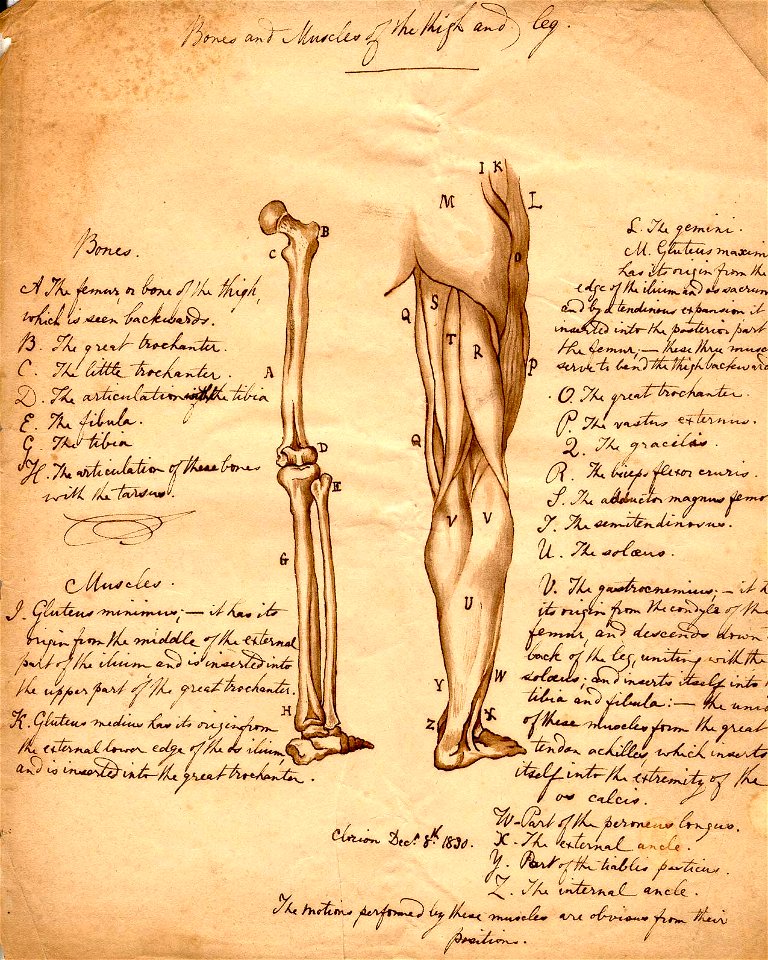 Bones and Muscles of the thigh and leg.
Bones.
A The femur, or bone of the thigh,
which is seen backwards.
B. The great trochanter.
C. The little trochanter.
D. The articulation with the tibia
E. The fibula.
G. The tibia
H. The articulation of these bones
with the tarsus.
Muscles.
I. Gluteus minimus; — it has its
origin from the middle of the external
part of the ilium and is inserted into
the upper part of the great trochanter.
K. Gluteus medius has its origin from
the external lower edge of the os ilium,
and is inserted into the great trochanter.
B
C
A
D
E
G
H
I K
L
M
O
Q
S
T
R
P
Q
V
V
U
Y
W
Z
X
L. The gemini.
M. Gluteus maxim
has its origin from the
edge of the ilium and os sacrum
and by a tendinous expansion it
inserted into the posterior part
the femur; — these three musc
serve to bend the thigh backward
O. The great trochanter.
P. The vastus externus.
Q. The gracilis.
R. The biceps flexor cruris.
S. The adductor magnus femo
T. The semitendinosus.
U. The solæus.
V. The gastrocnemius; — it h
its origin from the condyle of the
femur, and descends down
back of the leg, uniting with the
solæus; and inserts itself into t
tibia and fibula: — the uni
of these muscles form the great
tendon achilles which inserts
itself into the extremity of the
os calcis.
W. Part of the peroneus longus.
X. The external ancle.
Y. Part of the tiablis posticus.
Z. The internal ancle.
Dec. 8th 1830.
The motions performed by these muscles are obvious from their
positions.